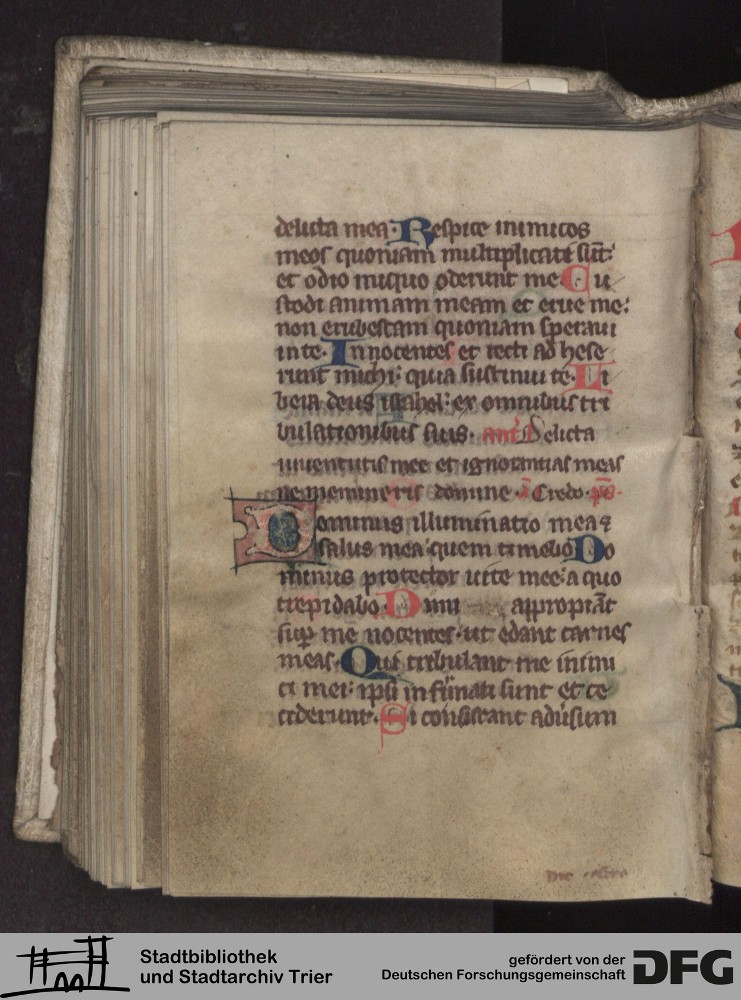 delicta mea· Respice inimicos
meos quoniam multiplicati sūt:
et odio iniquo oderunt me· Cu
stodi animam meam et erue me:
non erubescam quoniam speraui
in te· Innocentes et recti adhese
runt michi: quia sustinui te· Li
bera deus israhel: ex omnibus tri
bulationibus suis· ant' Delicta
iuuentutis mee et ignorantias meas
ne memineris domine· Credo· ps·
Dominus illuminatio mea ⁊
salus mea: quem timebo Do
minus protector uite mee: a quo
trepidabo· Dum appropiāt
sup̄ me nocentes· ut edant carnes
meas· Qui tribulant me inimi
ci mei: ipsi infirmati sunt et ce
ciderunt· Si consistant adūsum
Stadtbibliothek
und Stadtarchiv Trier
gefördert von der
Deutschen Forschungsgemeinschaft
DFG